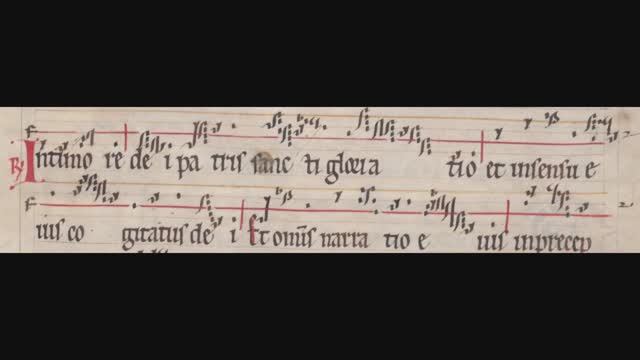 ℟ Intimo re de i pa tris sanc ti gloria tio et insensu e
ius co gitatus de i Et omīs narra tio e ius inprecep